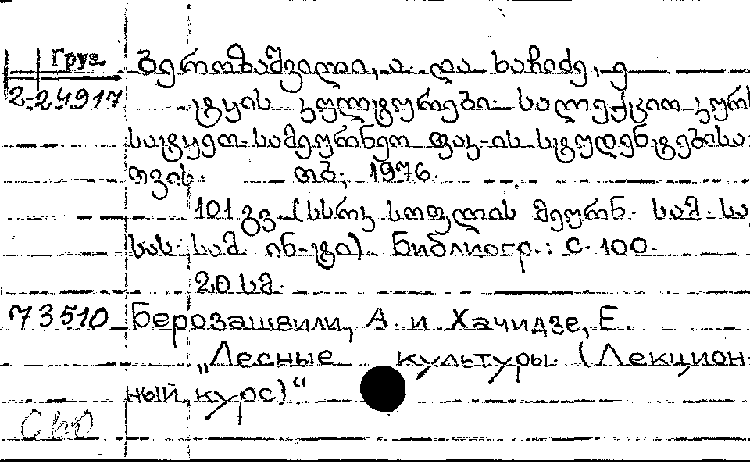 Груз.
ბეროზაშვილი, ა. და ხაჩიძე, ე
2-24917 ტყის კულტურები. სალექციო კურსი
სატყეო-სამეურნეო ფაკ-ის სტუდენტებისა-
თვის. თბ., 1976.
101 გვ. (სსრკ სოფლის მეურნ. სამ.
სას.-სამ. ინ-ტი). Библиогр.: с. 100.
20 სმ.
73510 Берозашвили, А. и Хачидзе, Е.
„Лесные культуры. (Лекцион-
ный курс)“